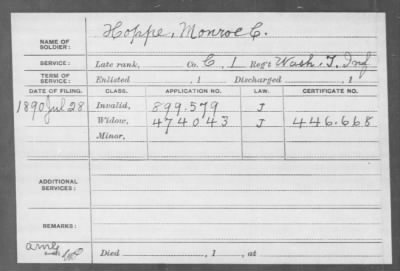 NAME OF SOLDIER: Hoppe, Monroe C.
SERVICE: Late rank, Co. C, 1 Reg't Wash. T. Inf
TERM OF SERVICE: Enlisted , 1 Discharged , 1
DATE OF FILING. CLASS. APPLICATION NO. LAW. CERTIFICATE NO.
1890 Jul 28 Invalid, 899.579 J
Widow, 474043 J 446.668
Minor,
ADDITIONAL SERVICES:
REMARKS:
Died , 1 , at